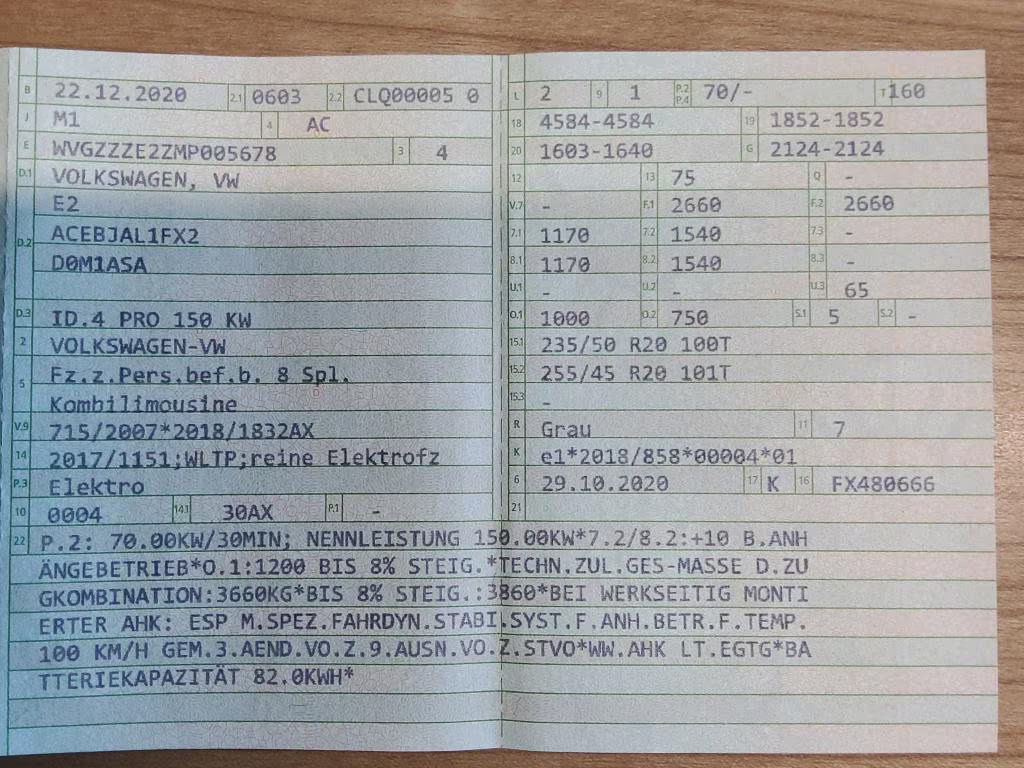 B 22.12.2020 2.1 0603 2.2 CLQ00005 0
J M1 4 AC
E WVGZZZE2ZMP005678 3 4
D.1 VOLKSWAGEN, VW
E2
D.2 ACEBJAL1FX2
D0M1ASA
D.3 ID.4 PRO 150 KW
2 VOLKSWAGEN-VW
5 Fz.z.Pers.bef.b. 8 Spl.
Kombilimousine
V.9 715/2007*2018/1832AX
14 2017/1151;WLTP;reine Elektrofz
P.3 Elektro
10 0004 14.1 30AX P.1 -
L 2 9 1 P.2 P.4 70/- T 160
18 4584-4584 19 1852-1852
20 1603-1640 G 2124-2124
12 13 75 Q -
V.7 - F.1 2660 F.2 2660
7.1 1170 7.2 1540 7.3 -
8.1 1170 8.2 1540 8.3 -
U.1 - U.2 - U.3 65
O.1 1000 O.2 750 S.1 5 S.2 -
15.1 235/50 R20 100T
15.2 255/45 R20 101T
15.3 -
R Grau 11 7
K e1*2018/858*00004*01
6 29.10.2020 17 K 16 FX480666
21
22 P.2: 70.00KW/30MIN; NENNLEISTUNG 150.00KW*7.2/8.2:+10 B.ANH
ÄNGEBETRIEB*O.1:1200 BIS 8% STEIG.*TECHN.ZUL.GES-MASSE D.ZU
GKOMBINATION:3660KG*BIS 8% STEIG.:3860*BEI WERKSEITIG MONTI
ERTER AHK: ESP M.SPEZ.FAHRDYN.STABI.SYST.F.ANH.BETR.F.TEMP.
100 KM/H GEM.3.AEND.VO.Z.9.AUSN.VO.Z.STVO*WW.AHK LT.EGTG*BA
TTERIEKAPAZITÄT 82.0KWH*